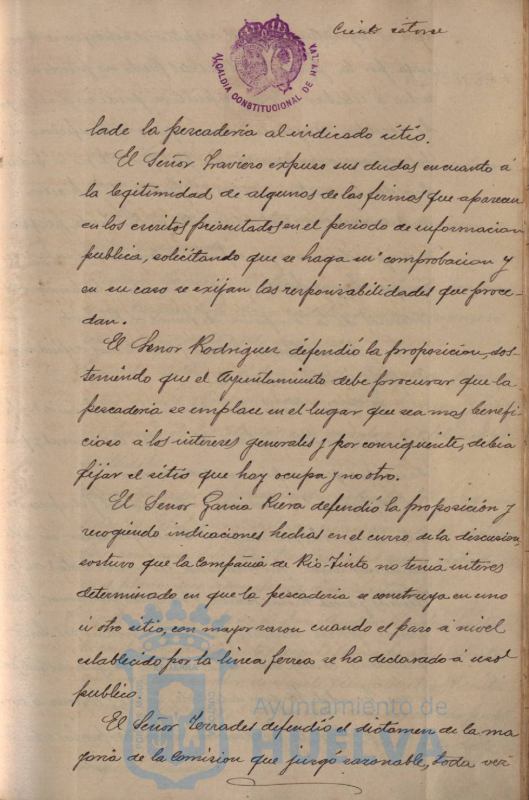 Ciento catorse
ALCALDIA CONSTITUCIONAL DE HUELVA
lade la pescaderia al indicado sitio.
El Señor Traviero expuso sus dudas en cuanto á
la legitimidad de algunos de las firmas que aparecen
en los escritos presentados en el periodo de informacion
publica, solicitando que se haga su comprobacion y
en su caso se exijan las responsabilidades que proce-
dan.
El Señor Rodriguez defendió la proposicion, sos
teniendo que el Ayuntamiento debe procurar que la
pescaderia se emplace en el lugar que sea mas benefi
cioso á los intereses generales y por consiguiente, debia
fijar el sitio que hoy ocupa y no otro.
El Señor Garcia Riera defendió la proposición y
recogiendo indicaciones hechas en el curso de la discusion,
sostuvo que la Compañia de Rio-Tinto no tenia interes
determinado en que la pescaderia se construya en uno
ú otro sitio, con mayor razon cuando el paso á nivel
establecido por la linea ferrea se ha declarado á uso
publico.
El Señor Terrades defendió el dictamen de la ma
yoria de la Comision que juzgó razonable, toda vez
Ayuntamiento de
HUELVA